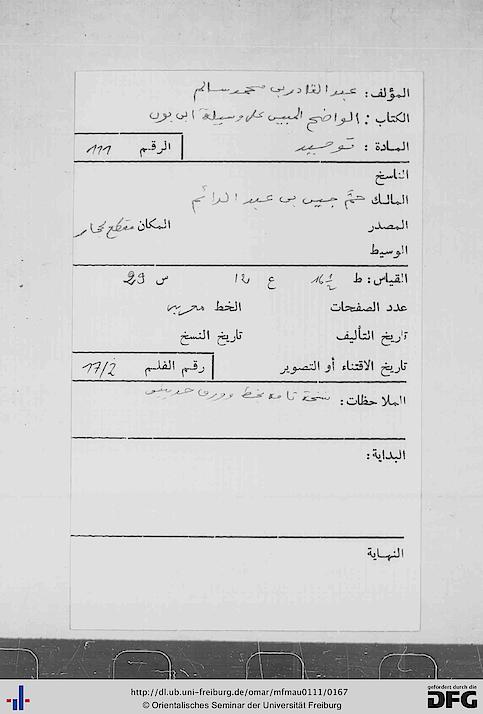 المؤلف: عبد القادر بن محمد سالم
الكتاب: الواضح المبين على وسيلة ابن بون
المادة: توحيد الرقم 111
الناسخ
المالك جيس بن عبد الدائم
المصدر المكان
الوسيط
القياس: ط ع س 29
عدد الصفحات الخط
تاريخ التأليف تاريخ النسخ
تاريخ الاقتناء أو التصوير رقم الفلم 17/2
الملاحظات: نسخة تامة بخط وورق حديثين
البداية:
النهاية
http://dl.ub.uni-freiburg.de/omar/mfmau0111/0167
© Orientalisches Seminar der Universität Freiburg
gefördert durch die
DFG